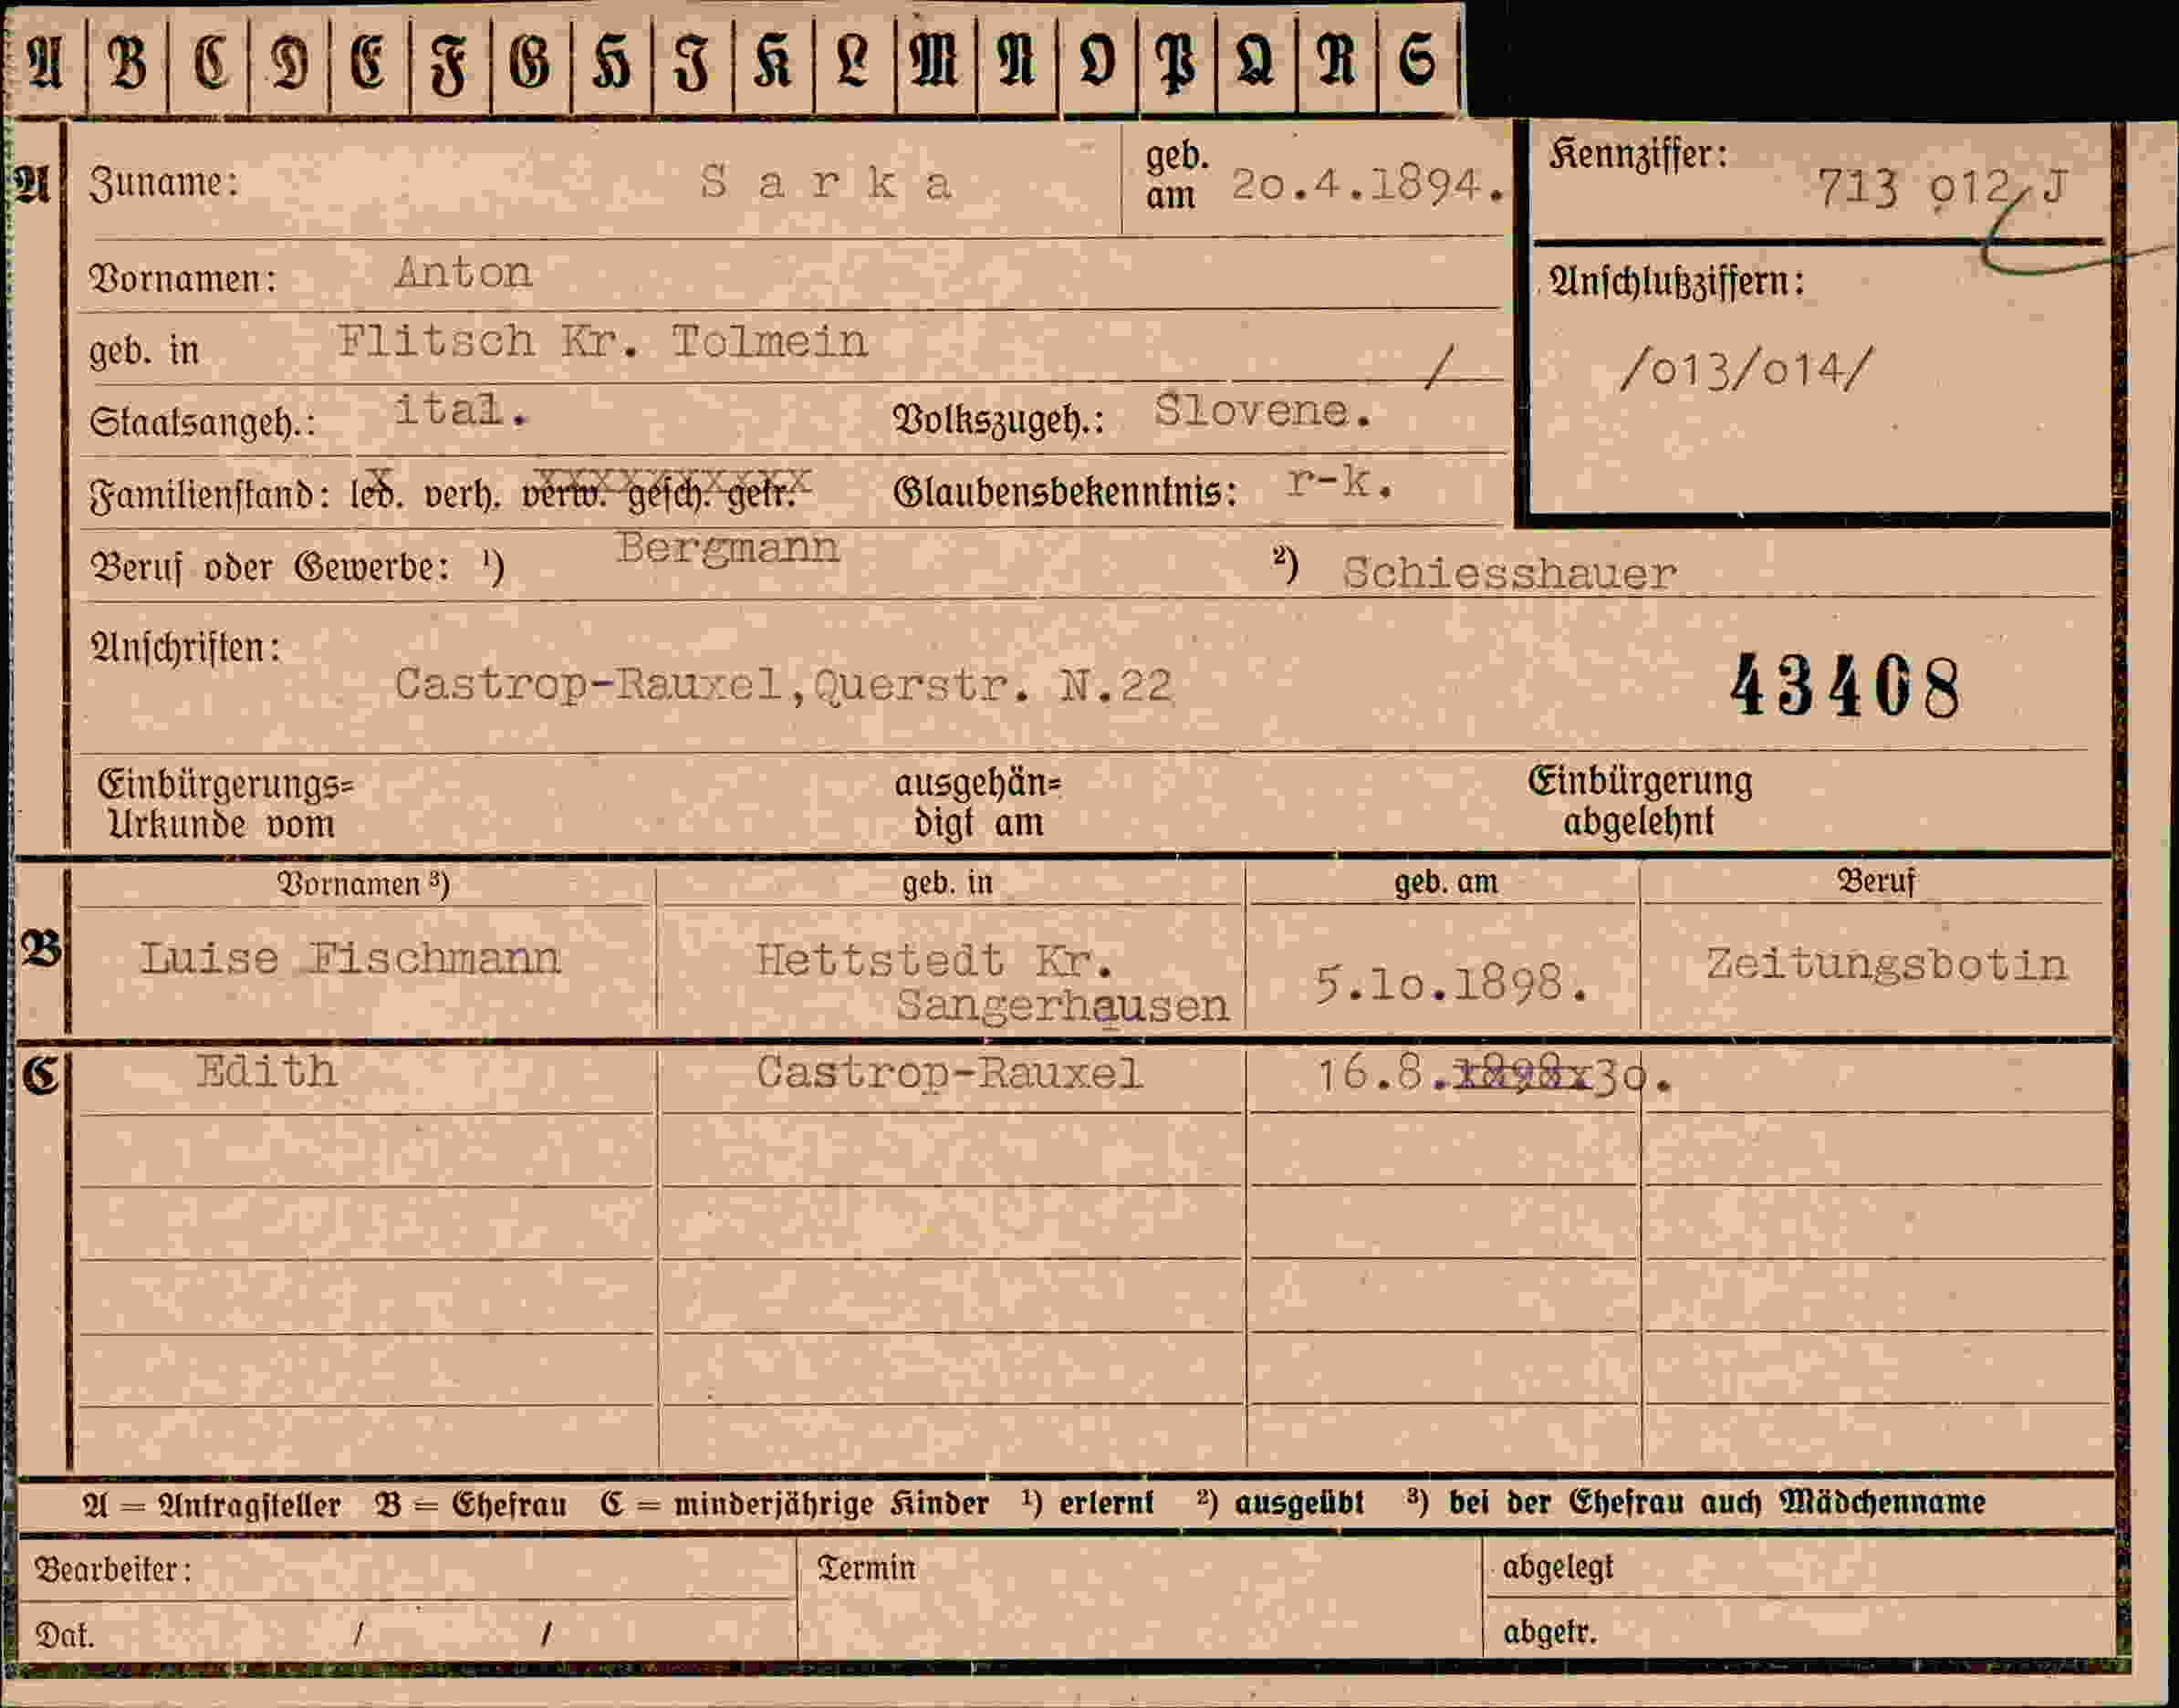 A B C D E F G H J K L M N O P Q R S
A Zuname: Sarka geb. am 20.4.1894.
Kennziffer: 713 012/J
Vornamen: Anton
Anschlußziffern:
geb. in Flitsch Kr. Tolmein /
/013/014/
Staatsangeh.: ital. Volkszugeh.: Slovene.
Familienstand: led. verh. verw. gesch. getr. Glaubensbekenntnis: r-k.
Beruf oder Gewerbe: ¹) Bergmann ²) Schiesshauer
Anschriften:
Castrop-Rauxel,Querstr. N.22 43408
Einbürgerungs= ausgehän= Einbürgerung
Urkunde vom digt am abgelehnt
Vornamen ³) geb. in geb. am Beruf
B Luise Fischmann Hettstedt Kr. Sangerhausen 5.10.1898. Zeitungsbotin
C Edith Castrop-Rauxel 16.8.1898x30.
A = Antragsteller B = Ehefrau C = minderjährige Kinder ¹) erlernt ²) ausgeübt ³) bei der Ehefrau auch Mädchenname
Bearbeiter: Termin abgelegt
Dat. / / abgetr.